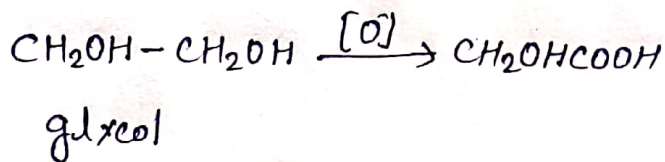 CH₂OH – CH₂OH —[O]→ CH₂OHCOOH
glycol